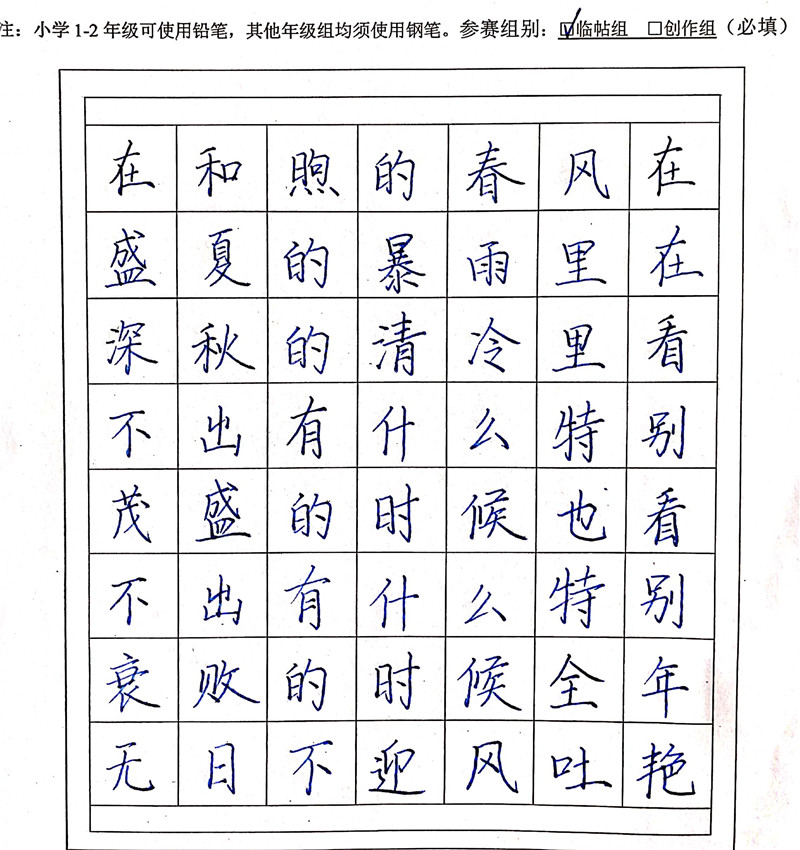 注：小学1-2年级可使用铅笔，其他年级组均须使用钢笔。参赛组别：☑临帖组 □创作组（必填）
在和煦的春风在
盛夏的暴雨里在
深秋的清冷里看
不出有什么特别
茂盛的时候也看
不出有什么特别
衰败的时候全年
无日不迎风吐艳